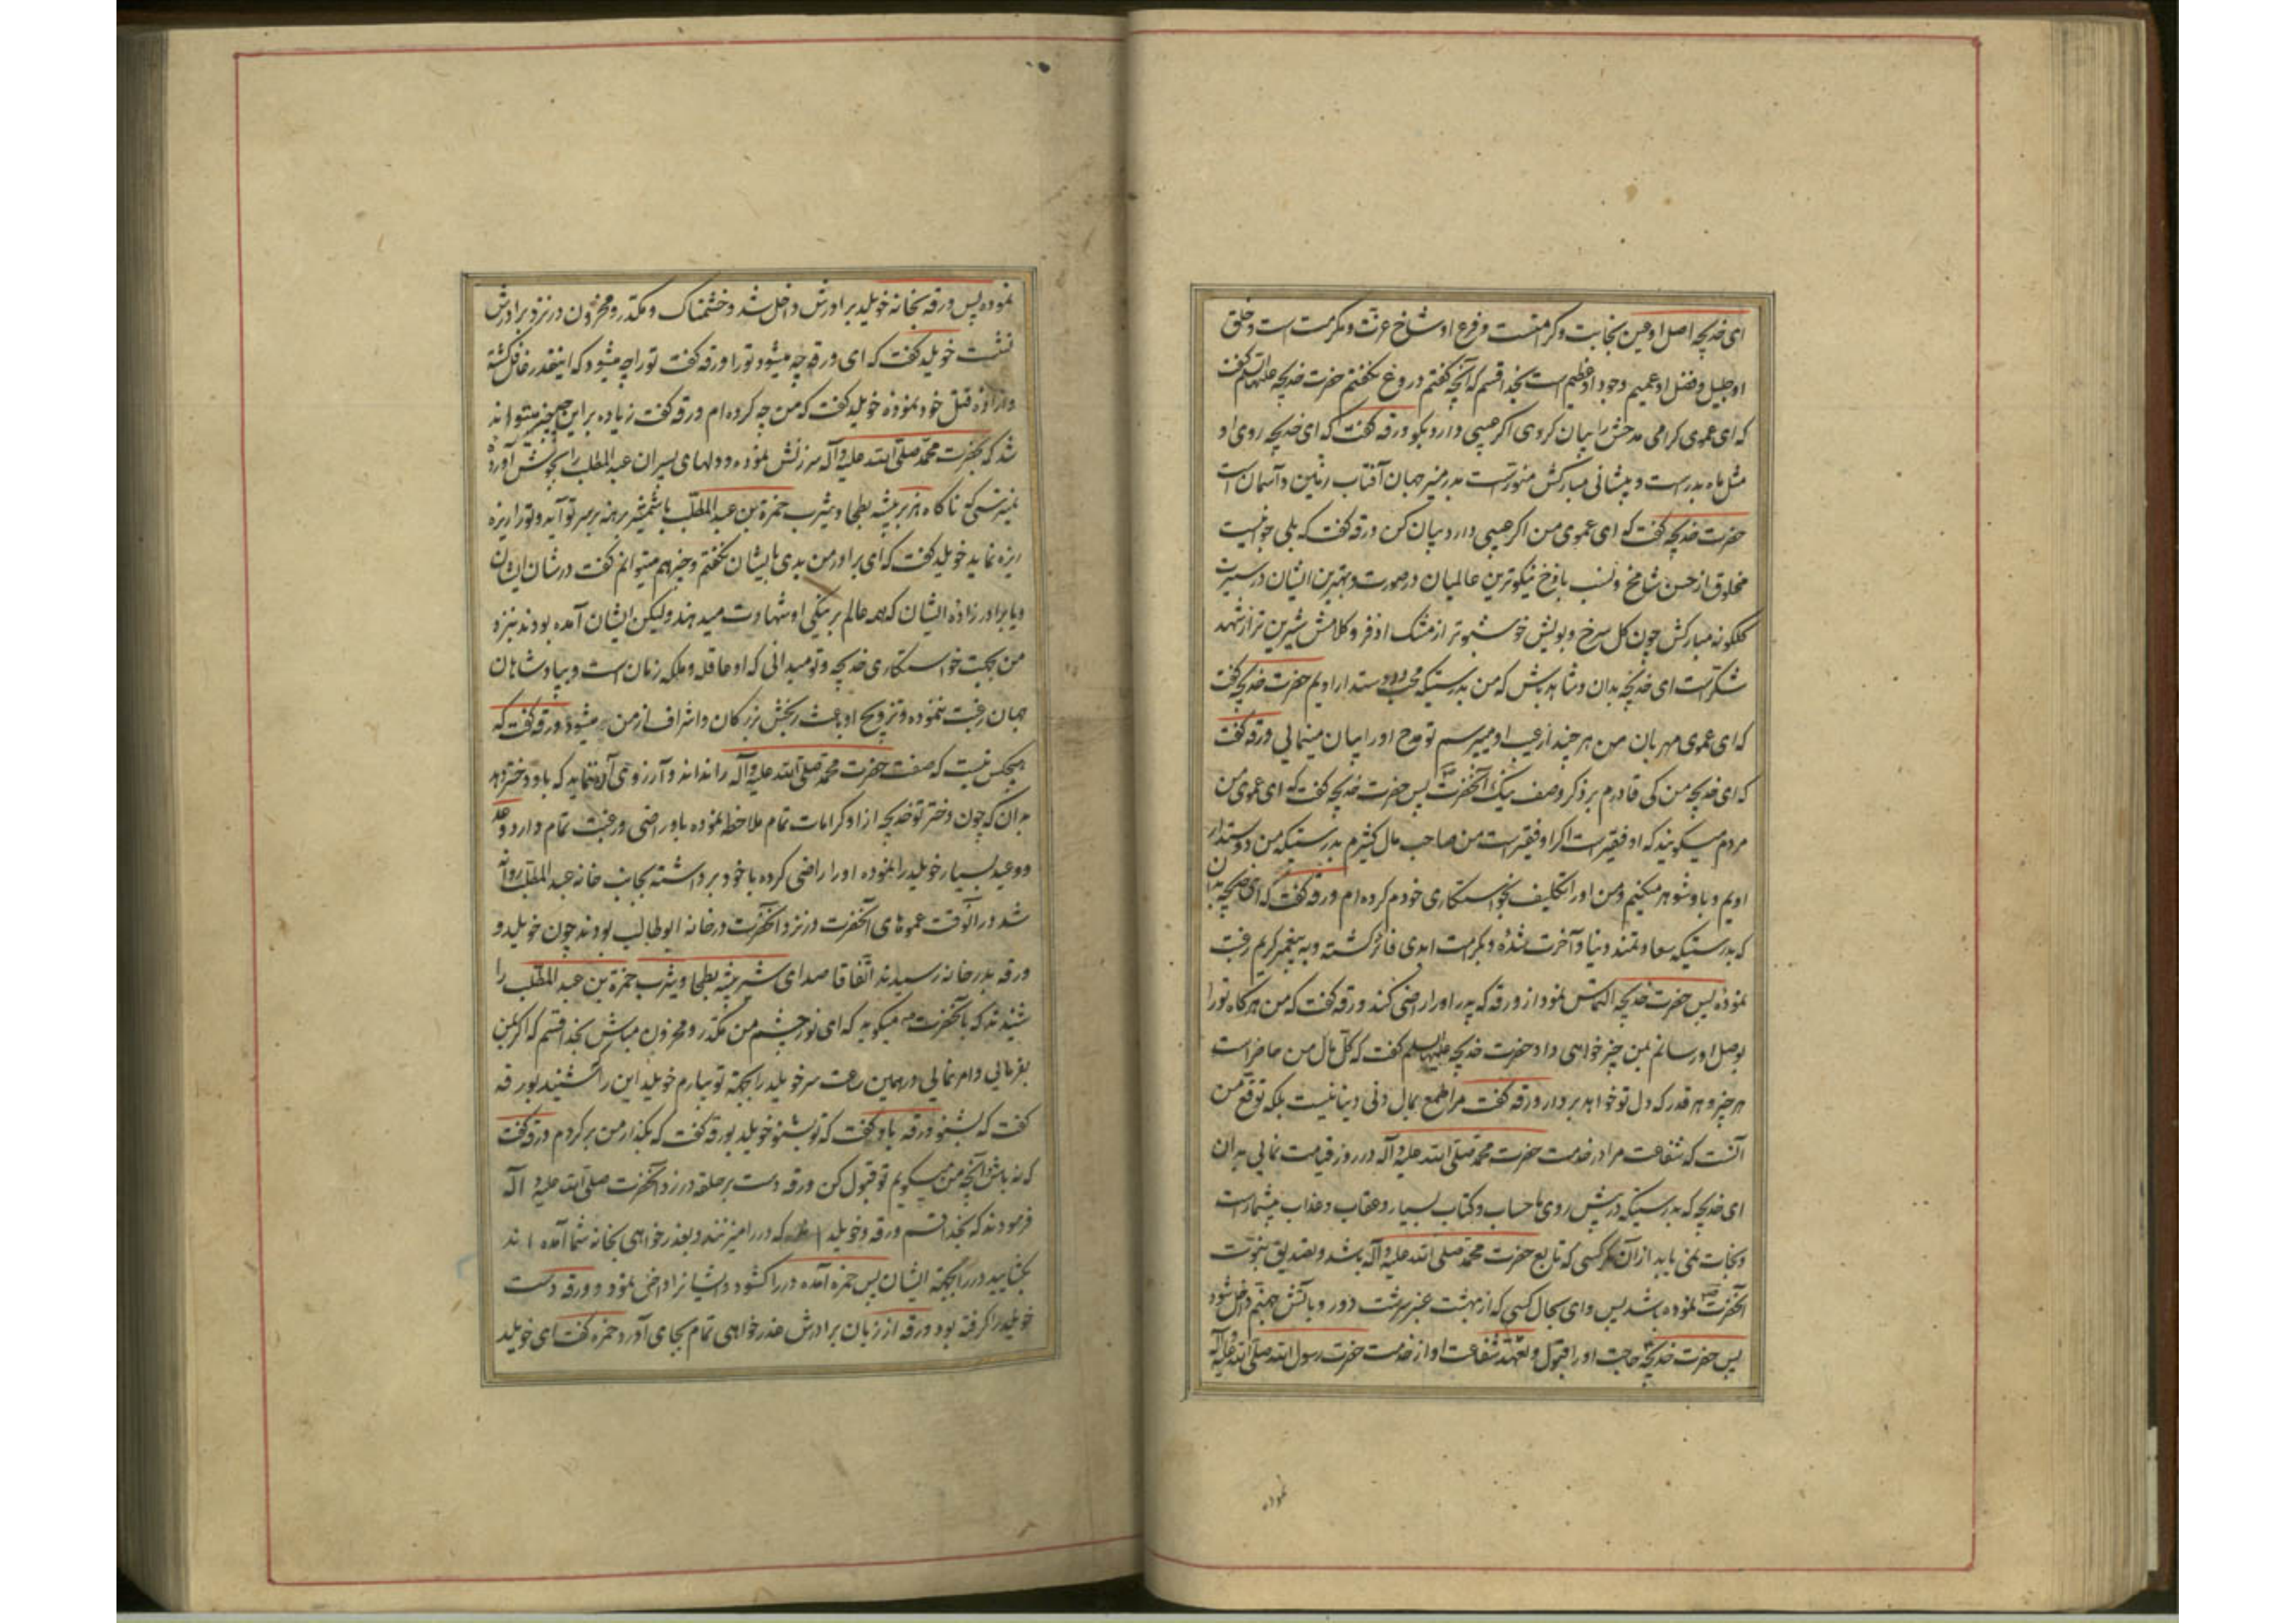 ای خدیجه اصل او عین نجابت و کرامتست و فرع او شاخ عزت و مکرمت است و خلق
او جلیل و فضل او عمیم و جود او عظیم است بخدا قسم که آنچه گفتم دروغ نگفتم حضرت خدیجه علیها السلم گفت
که ای عموی گرامی مدحش را بیان کردی اگر عیبی دارد بگو ورقه گفت که ای خدیجه روی او
مثل ماه بدر است و پیشانی مبارکش منور است بدر منیر جهان آفتاب زمین و آسمان است
حضرت خدیجه گفت که ای عموی من اگر عیبی دارد بیان کن ورقه گفت که بلی جوانیست
مخلوق از حسن شامخ و نسب باذخ نیکوترین عالمیان در صورت و بهترین ایشان در سیرت
گلگونه مبارکش چون گل سرخ و بویش خوشبوتر از مشک اذفر و کلامش شیرین تر از شهد
شکر است ای خدیجه بدان و شاهد باش که من بدرستیکه محب و دوستدار اویم حضرت خدیجه گفت
که ای عموی مهربان من هر چند از عیب او میپرسم تو مدح او را بیان مینمایی ورقه گفت
که ای خدیجه من کی قادرم بر ذکر وصف نیک آنحضرت پس حضرت خدیجه گفت که ای عموی من
مردم میگویند که او فقیر است اگر او فقیر است من صاحب مال کثیرم بدرستیکه من دوستدار
اویم و با او شوهر میکنم و من او را تکلیف بخواستکاری خودم کرده ام ورقه گفت که ای خدیجه بدان
که بدرستیکه سعادتمند دنیا و آخرت شده و بکرامت ابدی فائز گشته و به پیغمبر کریم رغبت
نموده پس حضرت خدیجه التماس نمود از ورقه که پدر او را راضی کند ورقه گفت که من هرگاه تو را
بوصل او رسانم بمن چیز خواهی داد حضرت خدیجه علیها السلم گفت که کل مال من حاضر است
هر چیز و هر قدر که دل تو خواهد بردار ورقه گفت مرا طمع بمال دنی دنیا نیست بلکه توقع من
آنست که شفاعت مرا در خدمت حضرت محمد صلی الله علیه و آله در روز قیامت نمایی بدان
ای خدیجه که بدرستیکه در پیش روی ما حساب و کتاب بسیار و عقاب و عذاب بیشمار است
و نجات نمی یابد از آن مگر کسی که تابع حضرت محمد صلی الله علیه و آله باشد و تصدیق بنبوت
آنحضرت نموده باشد پس وای بحال کسی که از بهشت عنبر سرشت دور و باتش جهنم داخل شود
پس حضرت خدیجه حاجت او را قبول و تعهد شفاعت او از خدمت حضرت رسول الله صلی الله علیه و آله
نموده
نموده پس ورقه بخانه خویلد برادرش داخل شد و خشمناک و مکدر و محزون در نزد برادرش
نشست خویلد گفت که ای ورقه چه میشود تو را ورقه گفت تو را چه میشود که اینقدر غافل گشته
و اراده قتل خود نموده خویلد گفت که من چه کرده ام ورقه گفت زیاده بر این چه چیز میتواند
شد که بحضرت محمد صلی الله علیه و آله سرزنش نموده و دلهای پسران عبد المطلب را بجوش آورده
نمیترسی که ناگاه هزبر بیشه بطحا و یثرب حمزة بن عبد المطلب با شمشیر برهنه بر سر تو آید و تو را ریزه
ریزه نماید خویلد گفت که ای برادر من بدی بایشان نگفتم و چیزی هم میتوانم گفت در شان ایشان
و یا برادرزاده ایشان که همه عالم بر نیکی او شهادت میدهند و لیکن ایشان آمده بودند نزد
من بجهت خواستکاری خدیجه و تو میدانی که او عاقله و ملکه زنان است و بپادشاهان
جهان رغبت ننموده و تزویج او باعث رنجش بزرگان و اشراف از من میشود ورقه گفت که
هیچکس نیست که صفت حضرت محمد صلی الله علیه و آله را نداند و آرزوی آن ننماید که باو دختر دهد
بدان که چون دختر تو خدیجه از او کرامات تمام ملاحظه نموده باو راضی و رغبت تمام دارد وعد
و وعید بسیار خویلد را نموده او را راضی کرده با خود برداشته بجانب خانه عبد المطلب روانه
شد در آنوقت عموهای آنحضرت در نزد آنحضرت در خانه ابو طالب بودند چون خویلد و
ورقه بدر خانه رسیدند اتفاقا صدای شیر بیشه بطحا و یثرب حمزة بن عبد المطلب را
شنیدند که بآنحضرت میگوید که ای نور چشم من مکدر و محزون مباش بخدا قسم که اگر بمن
بفرمایی و امر نمایی در همین ساعت سر خویلد را بجهة تو بیارم خویلد این را شنید بورقه
گفت که بشنو ورقه باو گفت که تو بشنو خویلد بورقه گفت که بگذار من برگردم ورقه گفت
که نه باش آنچه من میگویم تو قبول کن ورقه دست بر حلقه در زد آنحضرت صلی الله علیه و آله
فرمودند که بخدا قسم ورقه و خویلد که در را میزنند و بعذر خواهی بخانه شما آمده اند
بگشایید در را بجهة ایشان پس حمزه آمده در را گشود و ایشانرا داخل نمود و ورقه دست
خویلد را گرفته بود ورقه از زبان برادرش عذر خواهی تمام بجای آورد حمزه گفت ای خویلد